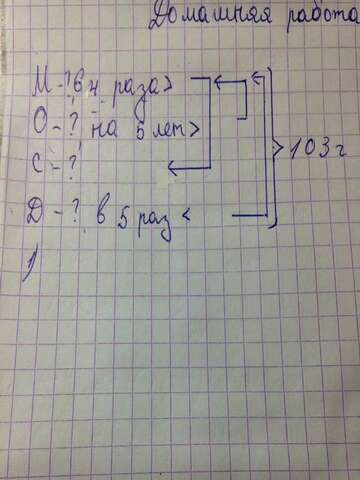 Домашняя работа
М - ? в 4 раза >
О - ? на 5 лет >
С - ?
Д - ? в 5 раз <
103 г
1)